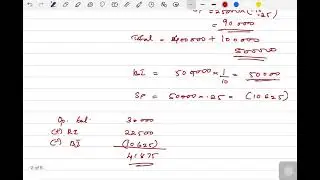 = 250000 × (10
.25)
= 90000
Total = 400000 + 100000
500000
RI = 500000 × 1/10 = 50000
SP = 50000 × .25 = (10.625)
Op. bal. 30000
(+) RI 22500
(-) BI (10.625)
41875